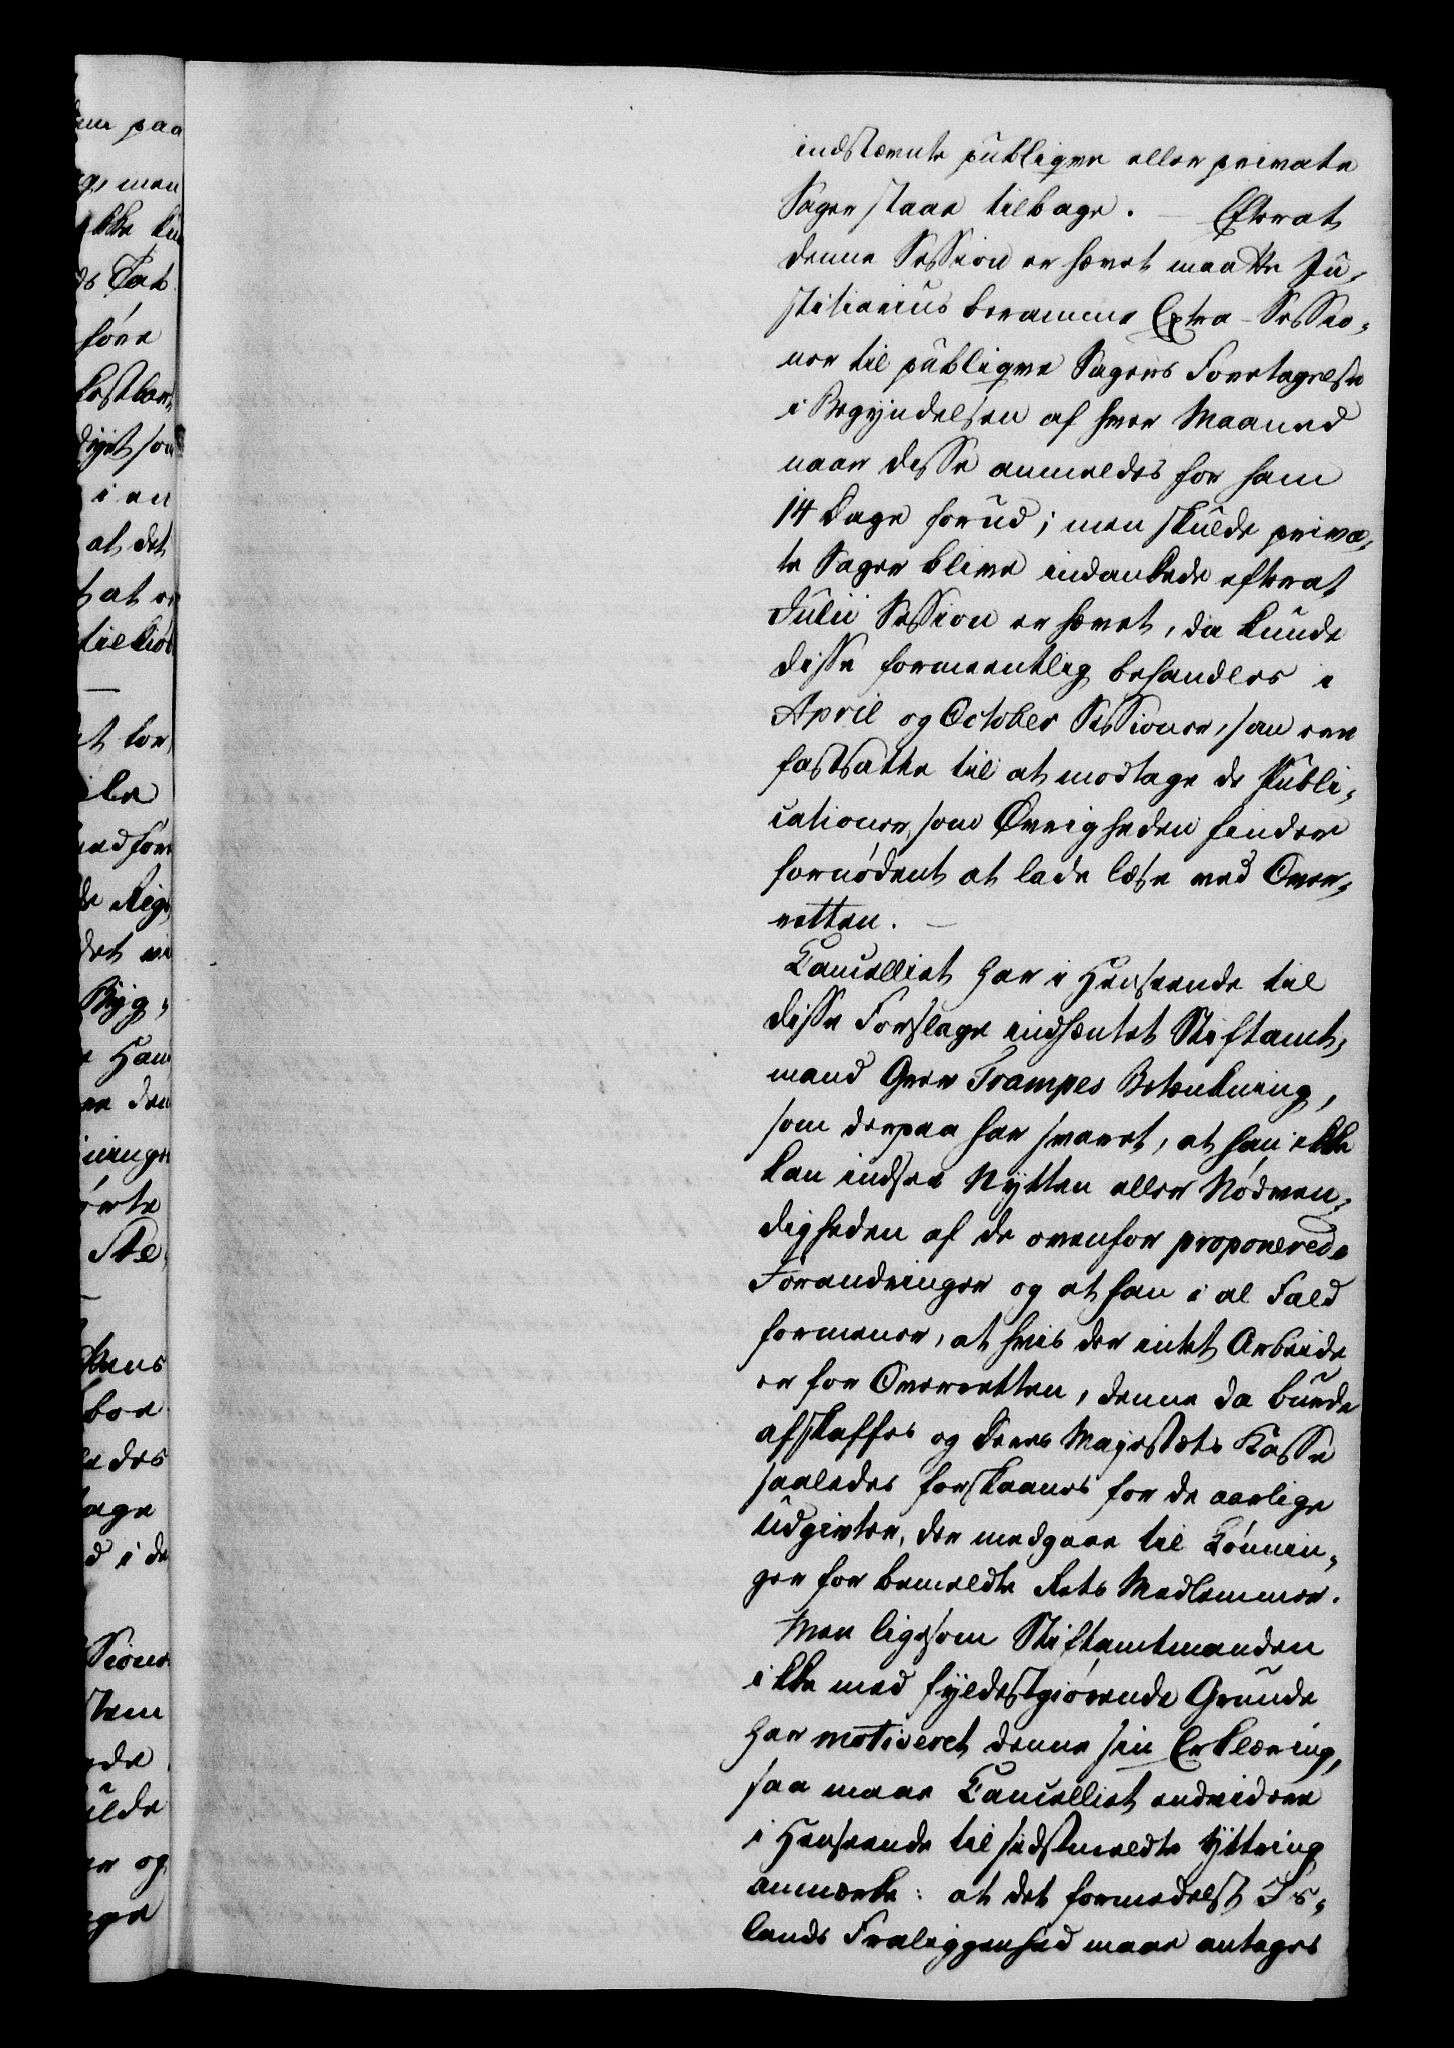 indstævnte publiqve eller private
Sager staae tilbage. — Efterat
denne Session er hævet maatte Ju-
stitiarius beramme Extra-Sessio-
ner til publiqve Sagers Foretagelse
i Begyndelsen af hver Maaned
naar disse anmeldes for ham
14 Dage forud; men skulde priva-
te Sager blive indankede efterat
Julii Session er hævet, da kunde
disse formeentlig behandles i
April og October Sessioner, som ere
fastsatte til at modtage de Publi-
cationer, som Øvrigheden finder
fornødent at lade læse ved Over-
retten. —
Cancelliet har i Henseende til
disse Forslage indhentet Stiftamt-
mand Grev Trampes Betænkning,
som derpaa har svaret, at han ikke
kan indsee Nytten eller Nødven-
digheden af de ovenfor proponerede
Forandringer og at han i al Fald
formener, at hvis der intet Arbeide
er for Overretten, denne da burde
afskaffes og Deres Majestæts Kasse
saaledes forskaanes for de aarlige
Udgivter, der medgaae til Lønnin-
ger for bemeldte Rets Medlemmer.
Men ligesom Stiftamtmanden
ikke med fyldestgiørende Grunde
har motiveret denne sin Erklæring,
saa maae Cancelliet endvidere
i Henseende til sidstmeldte Yttring
anmærke: at det formedelst Is-
lands Fraliggenhed maae antages